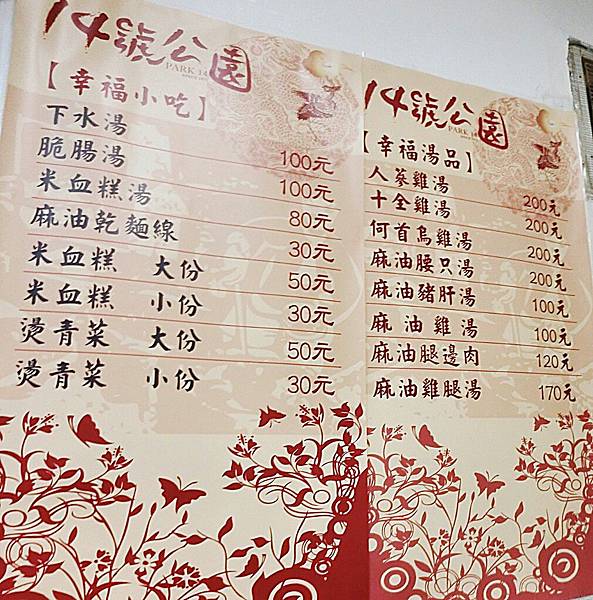 14號公園
PARK 14
【幸福小吃】
下水湯 100元
脆腸湯 100元
米血糕湯 80元
麻油乾麵線 30元
米血糕 大份 50元
米血糕 小份 30元
燙青菜 大份 50元
燙青菜 小份 30元
14號公園
PARK 14
【幸福湯品】
人蔘雞湯 200元
十全雞湯 200元
何首烏雞湯 200元
麻油腰只湯 200元
麻油豬肝湯 100元
麻油雞湯 100元
麻油腿邊肉 120元
麻油雞腿湯 170元